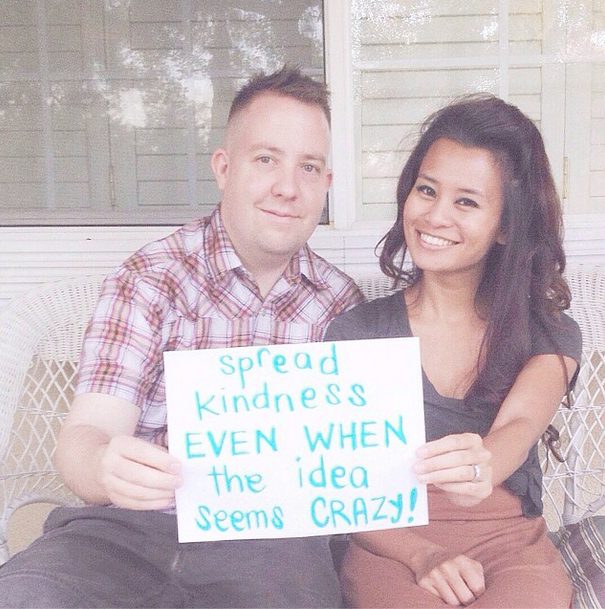 spread
kindness
EVEN WHEN
the idea
seems CRAZY!